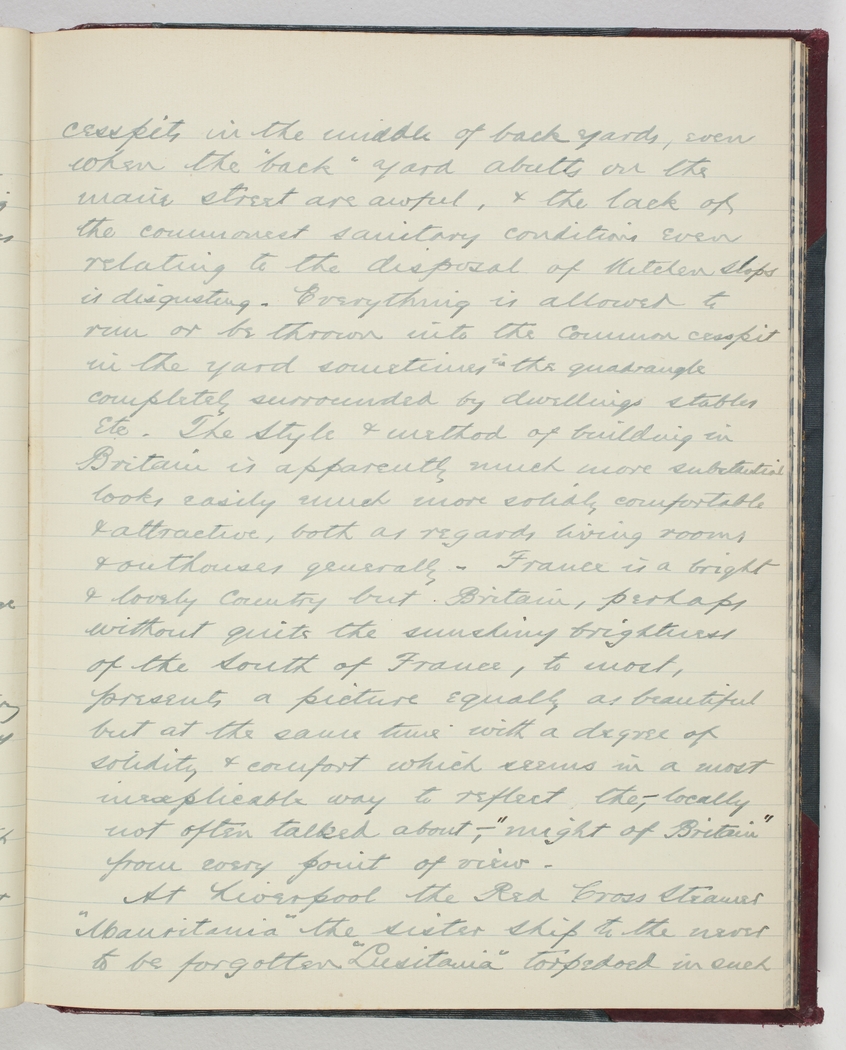 cesspits in the middle of back yards, even
when the "back" yard abutts on the
main street are awful, & the lack of
the commonest sanitary conditions even
relating to the disposal of kitchen slops
is disgusting. Everything is allowed to
run or be thrown into the common cesspit
in the yard sometimes in the quadrangle
completely surrounded by dwellings stables
Etc. The style & method of building in
Britain is apparently much more substantial
looks easily much more solidly comfortable
& attractive, both as regards living rooms
& outhouses generally. France is a bright
& lovely Country but Britain, perhaps
without quite the sunshiny brightness
of the South of France, to most,
presents a picture equally as beautiful
but at the same time with a degree of
solidity & comfort which seems in a most
inexplicable way to reflect the,- locally
not often talked about -, "might of Britain"
from every point of view -
At Liverpool the Red Cross Steamer
"Mauritania" the sister ship to the never
to be forgotten "Lusitania" torpedoed in such